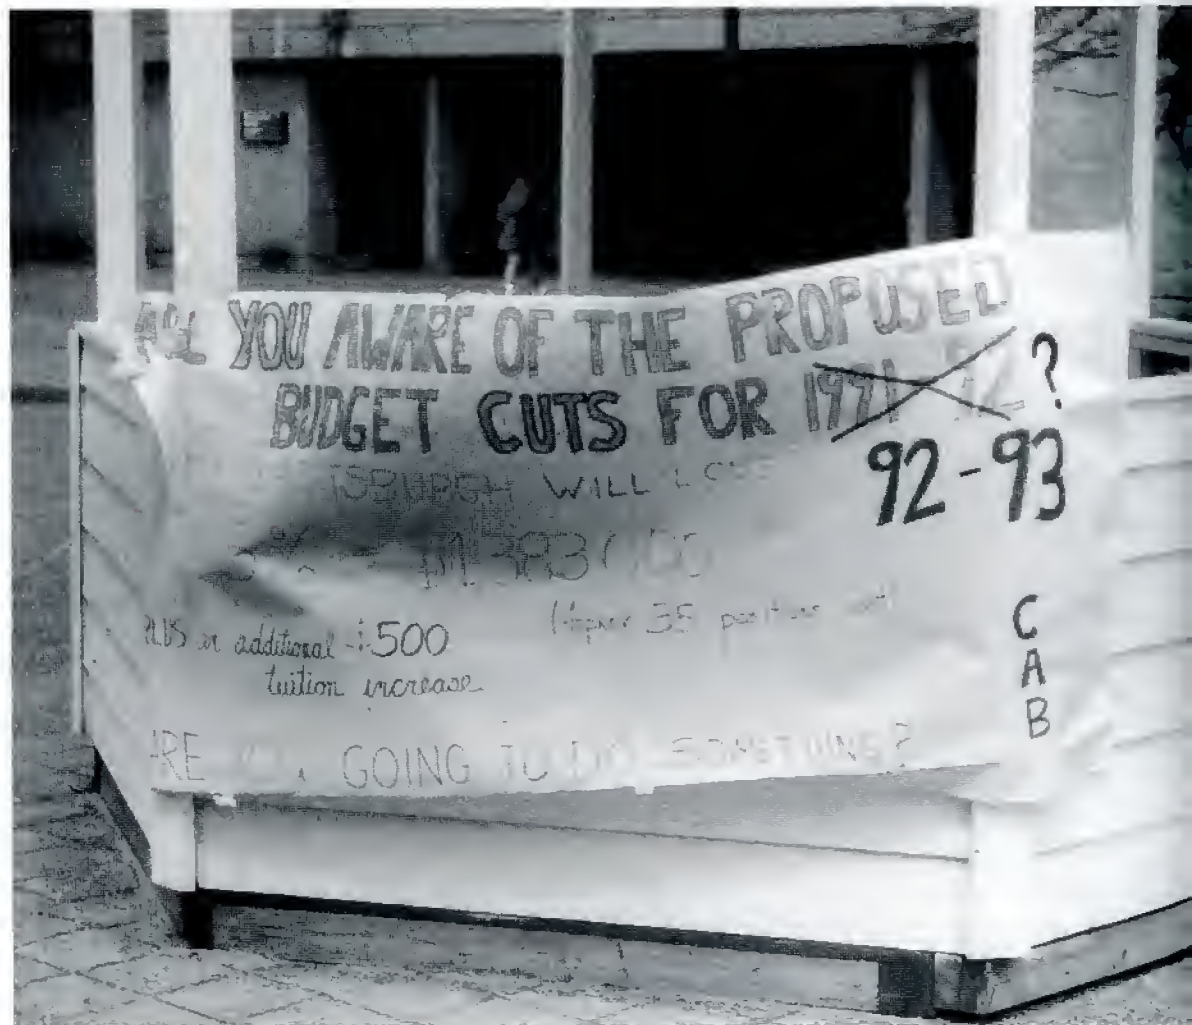 ARE YOU AWARE OF THE PROPOSED
BUDGET CUTS FOR 1991-92?
92-93
WILL
35
PLUS an additional $500
tuition increase
ARE YOU GOING TO DO SOMETHING?
C
A
B